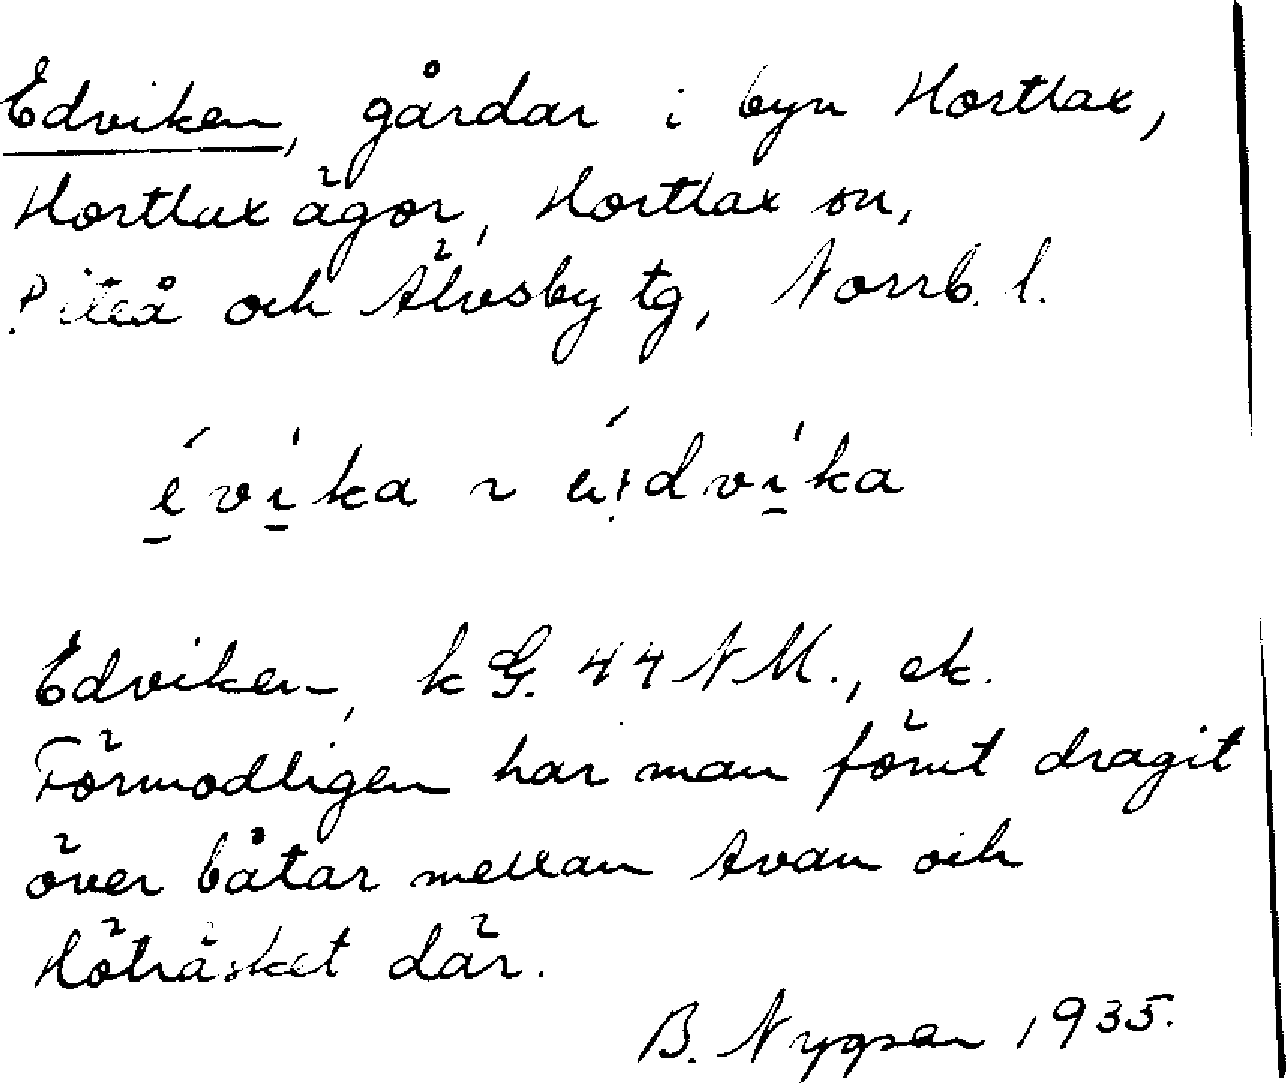 Edviken, gårdar i byn Hortlax,
Hortlax ägor, Hortlax sn,
Piteå och Älvsby tg, Norrb. l.
évika ~ 
Edviken, k G. 44 NM., ek.
Förmodligen har man förut dragit
över båtar mellan Avan och
Höträsket där.
B. Nygren 1935.